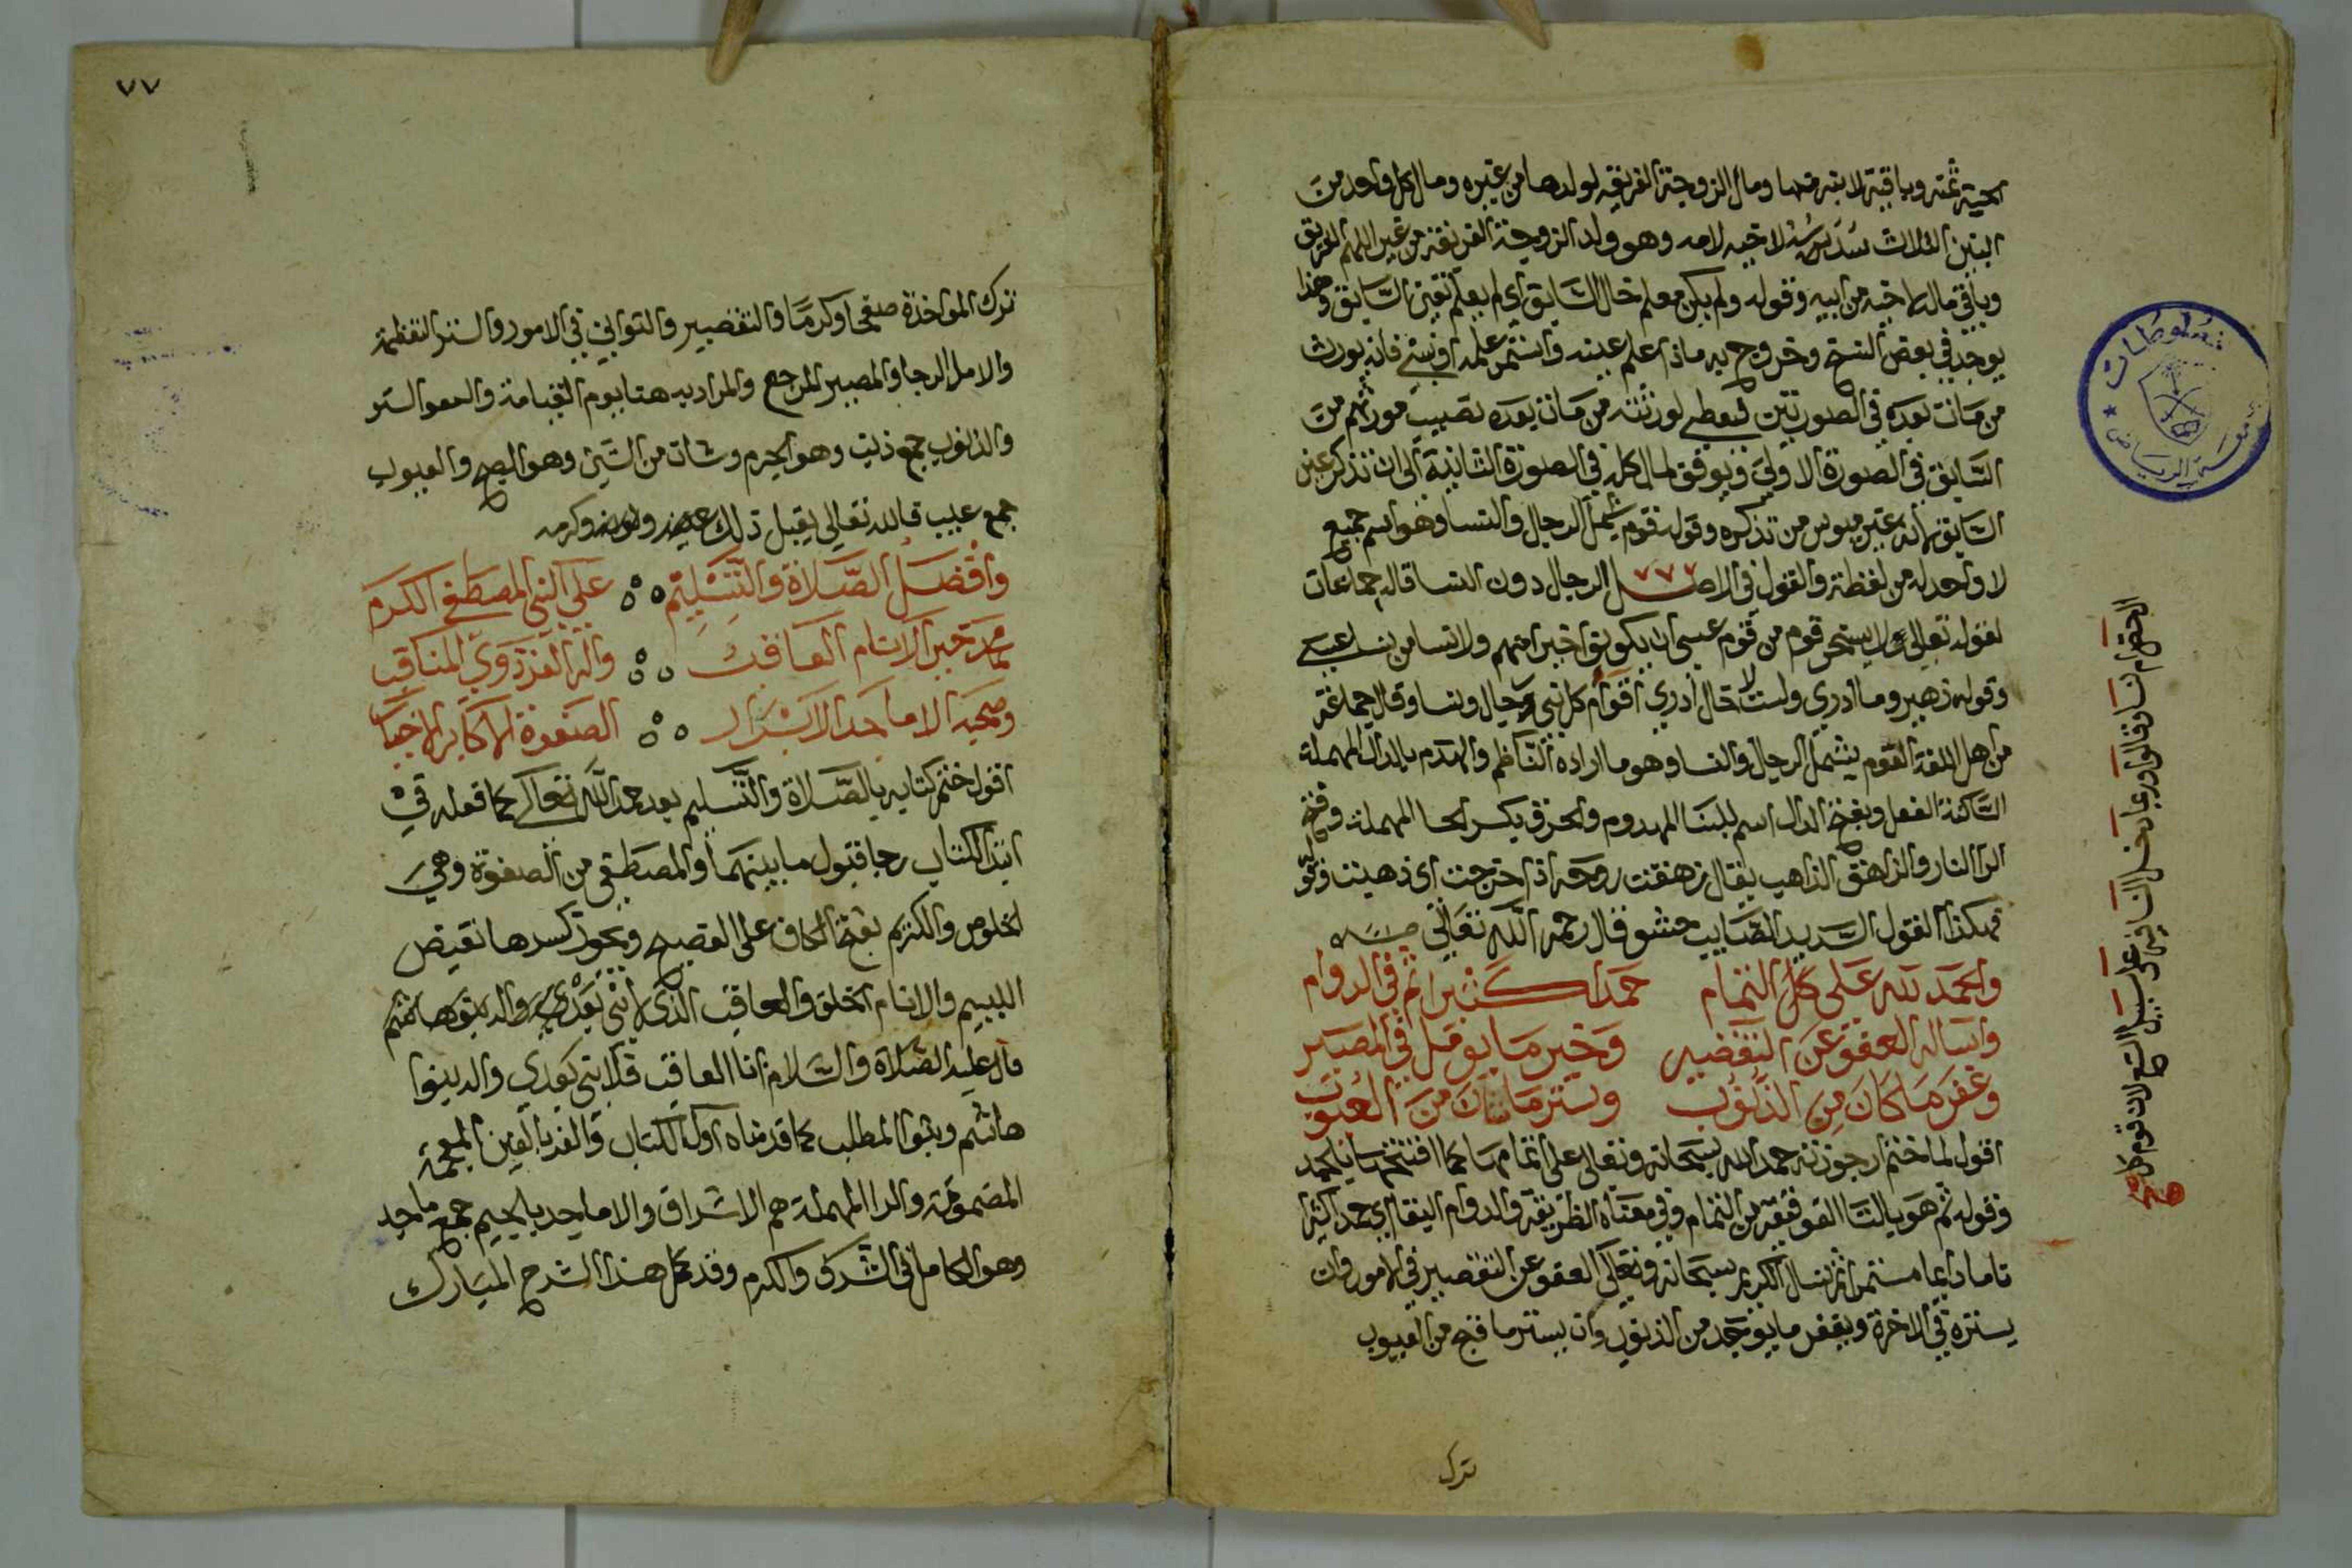 الحية ثمنه وباقيه لابنه منها ومال الزوجة الغريقة لولدها من غيره ومال كل واحد من
البنين الثلاث سدسه لاخيه لامه وهو ولد الزوجة الغريقة من غير ابيهم الغريق
وباقي ماله لاخيه من ابيه وقوله ولم يكن يعلم حال السابق اي لم يعلم عين السابق وهذا
يوجد في بعض النسخ وخروج به ماذا علم عينه واستمر علمه او نسي فانه يورث
من مات بعده في الصورتين فيعطى لورثته من مات بعده نصيب مورثهم من
السابق في الصورة الاولى ويوقف المال كله في الصورة الثانية الى ان تذكر عين
السابق لانه غير ميوس من تذكره وقوله قوم يشمل الرجال والنسا وهو اسم جميع
لا واحد له من لفظه والقول في الاصل للرجال دون النسا قاله جماعات
لقوله تعالى ولا يسخر قوم من قوم عسى ان يكونوا خيرا منهم ولا نسا من نسا عسى
وقوله زهير وما ادري ولست لا خال ادري اقوام كل نبي رجال ونسا وقال جماعة
من اهل اللغة القوم يشمل الرجال والنسا وهو ما اراده الناظم والهدم بالدال المهملة
الساكنة الفعل وبفتح الدال اسم للبنا المهدوم والحرق بكسر الحا المهملة وفتح
الرا النار والزاهق الذاهب يقال زهقت روحه اذا خرجت اي ذهبت وقوله
فهكذا القول السديد الصايب حشو قال رحمه الله تعالى
والحمد لله على كل التمام حمدا كثيرا تم في الدوام
واساله العفو عن التقصير وخير ما يومل في المصير
وغفر ما كان من الذنوب وستر ما شان من العيوب
اقول لما ختم ارجوزته حمد الله سبحانه وتعالى على اتمامها كما افتتحها بالحمد
وقوله ثم هو بالتا الفوقية من التمام وفي معناه الظريفة والدوام البقا اي حمدا كثيرا
تاما دايما مستمرا ثم نسال الكريم سبحانه وتعالى العفو عن التقصير في الامور وان
يستره في الاخرة ويغفر ما يوجد من الذنوب وان يستر ما قبح من العيوب
ترك
مخطوطات
جامعة الرياض
٧٧
ترك المواخذة صفحا وكرما والتقصير والتواني في الامور والستر التغطية
والامل الرجا والمصير المرجع والمراد به هنا يوم القيامة والعفو الستر
والذنوب جمع ذنب وهو الجرم وشان من الشين وهو القبح والعيوب
جمع عيب فالله تعالى يقبل ذلك وكرمه
وافضل الصلاة والتسليم على النبي المصطفى الكريم
محمد خير الانام العاقب واله الغر ذوي المناقب
وصحبه الاماجد الابرار الصفوة الاكابر الاخيار
اقول ختم كتابه بالصلاة والتسليم بعد حمد الله تعالى كما فعله في
ابتدا الكتاب رجا قبول ما بينهما والمصطفى من الصفوة وهي
الخلوص والكريم بفتح الكاف على الفصيح ويجوز كسرها نقيض
اللييم والانام الخلق والعاقب الذي لا نبي بعدي واله بنو هاشم
قال عليه الصلاة والسلام انا العاقب فلا نبي بعدي واله بنوا
هاشم وبنوا المطلب كما قدمناه اول الكتاب والغر بالغين المعجمة
المضمومة والرا المهملة هم الاشراف والاماجد بالجيم جمع ماجد
وهو الكامل في الشرف والكرم وقد كمل هذا الشرح المبارك